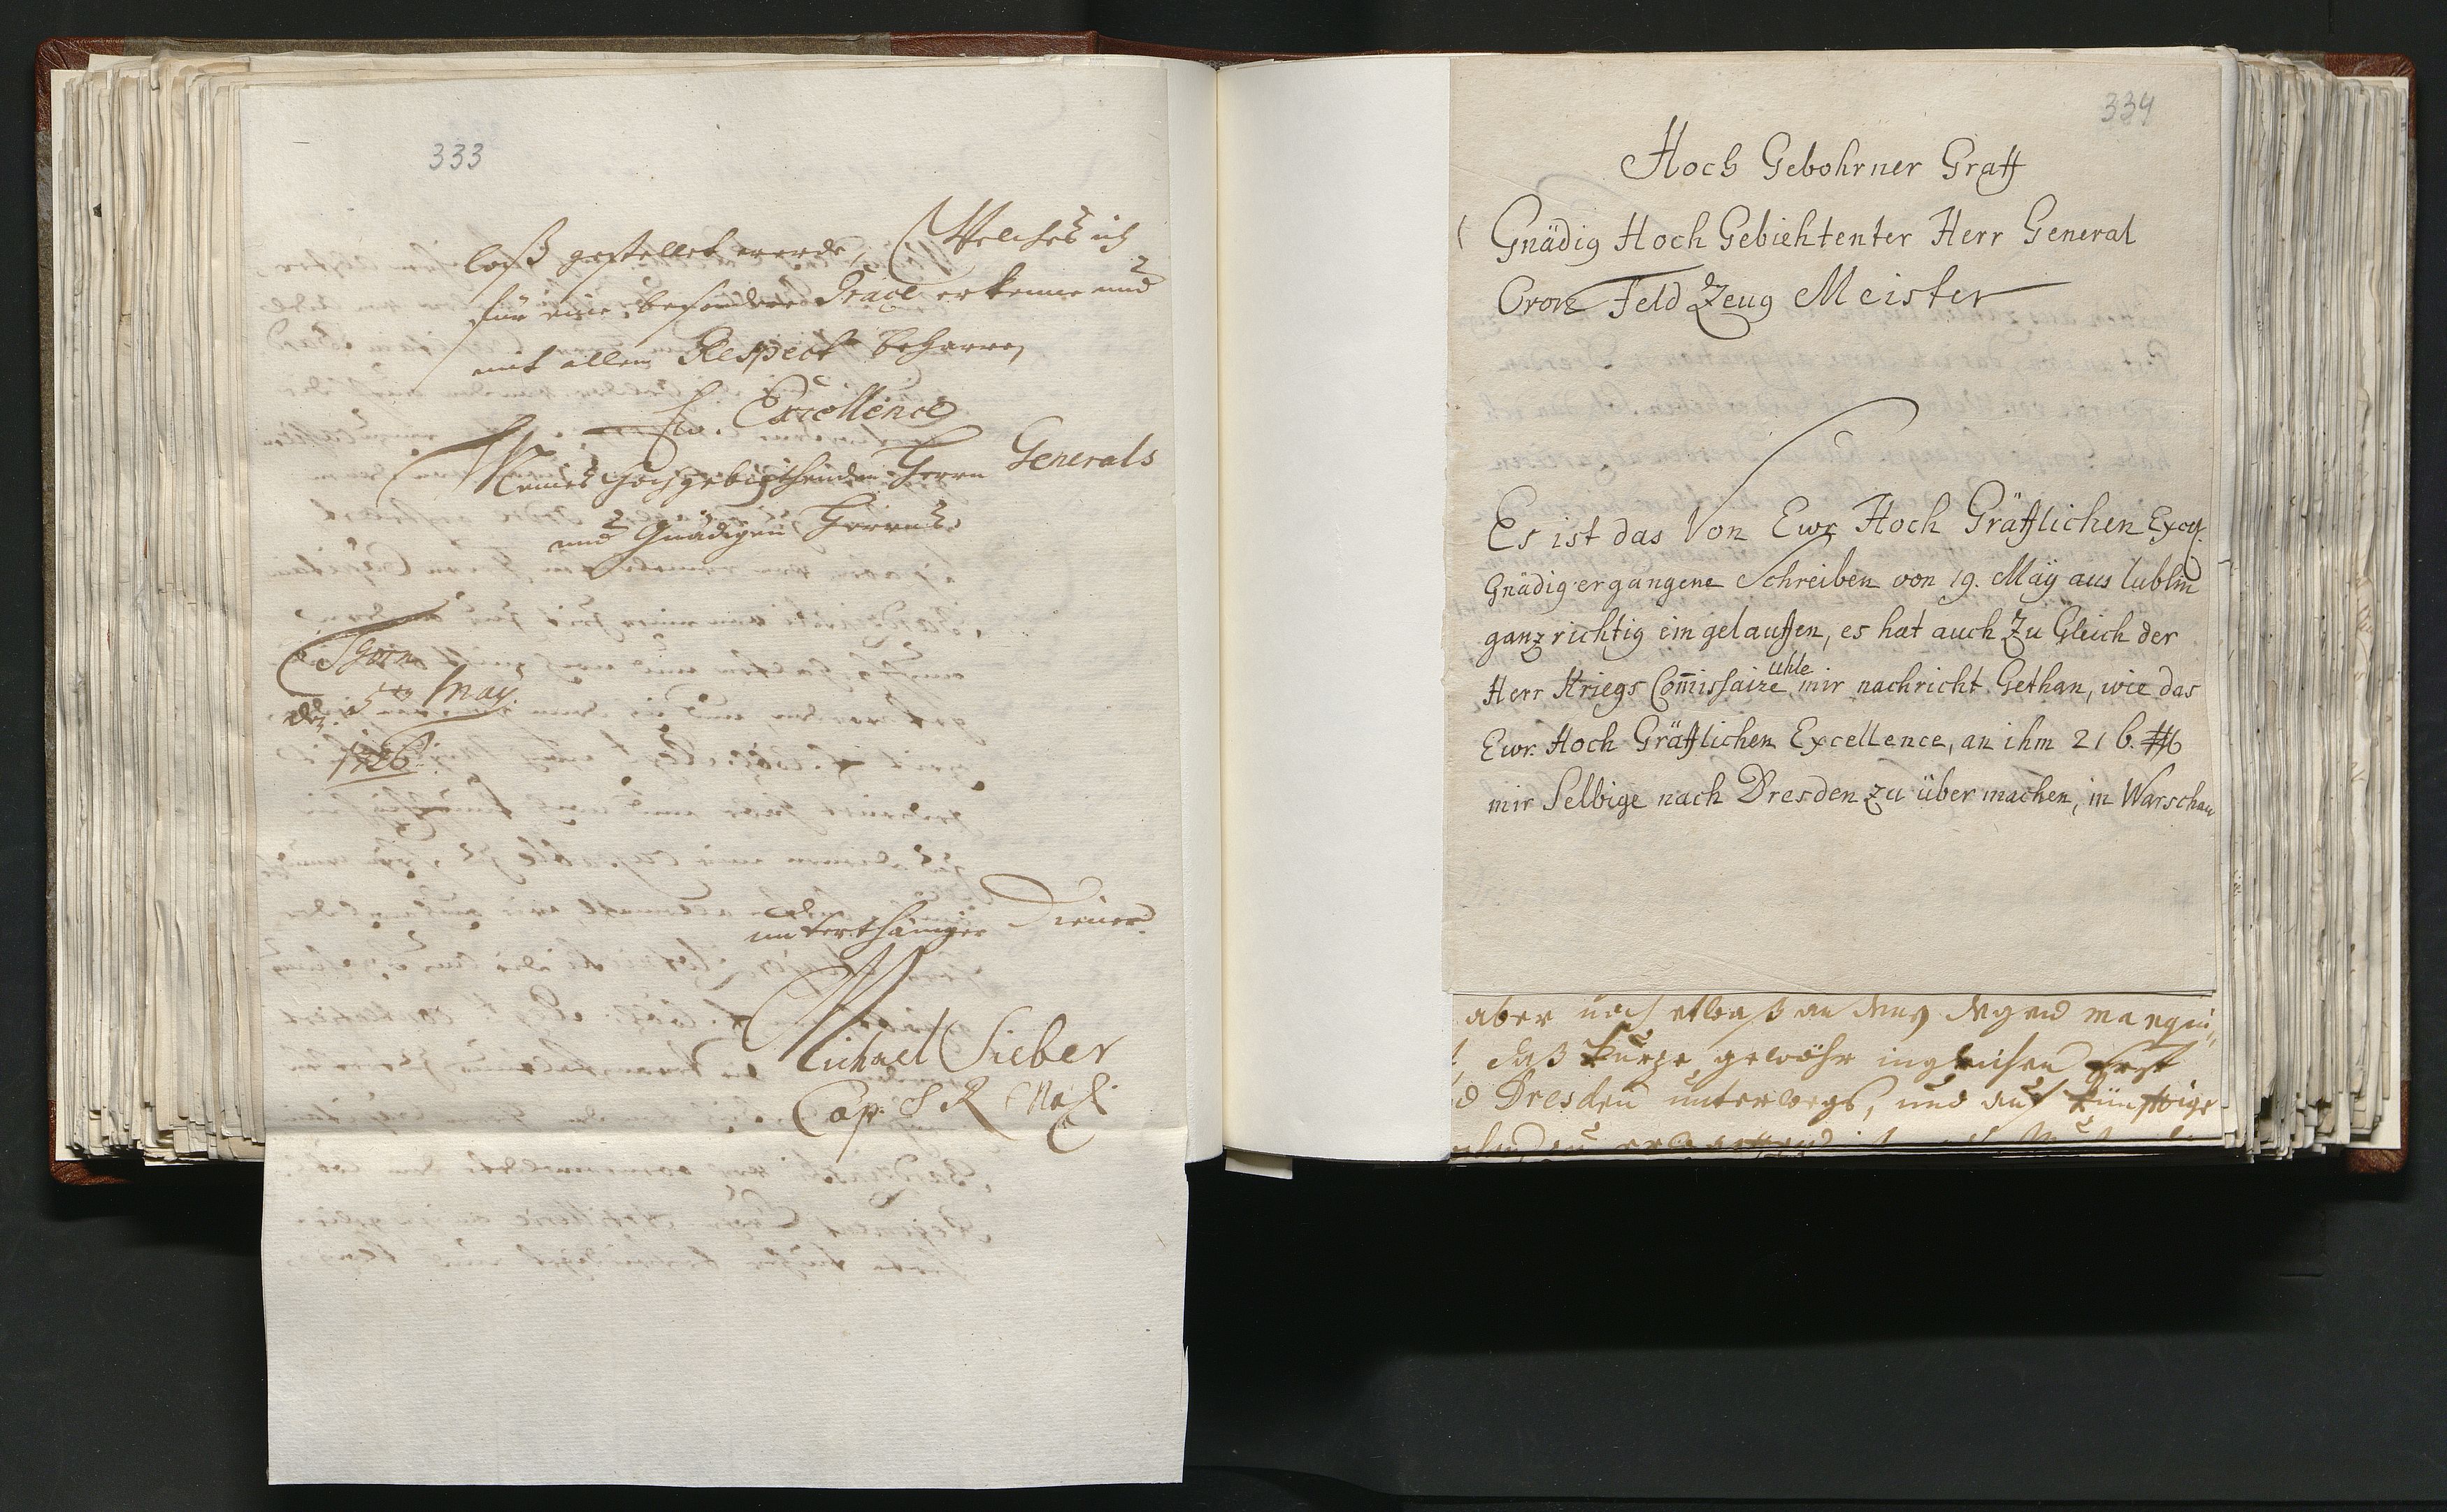 333
loß gestellet werde, Welches ich
für eine besondere Grace erkenne und
mit allem Respect beharre,
Ew. Excellence
Meines Hochgebiethenden Herrn Generals
und Gnädigen Herrens.
Thorn
den 5ten May.
unterthäniger Diener.
Michael Sieber
Cap.
334
Hoch Gebohrner Graff
Gnädig Hoch Gebiehtenter Herr General
Cron Feld Zeug Meister
Es ist das Von Ewr Hoch Gräfflichen Excel.
Gnädig ergangene Schreiben von 19. Maÿ aus lublin
ganz richtig ein gelauffen, es hat auch Zu Gleich der
Herr Kriegs Com̄issaire uhle mir nachricht Gethan, wie das
Ewr. Hoch Gräfflichen Excellence, an ihm 216. #
mir Selbige nach Dresden zu über machen, in Warschau
aber noch etwaß an
daß kurze gewöhr ingleichen
Dresden unterwegs, und auf künfftige